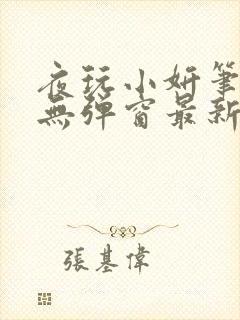 夜玩小妍筆
無彈窗最新
張基偉